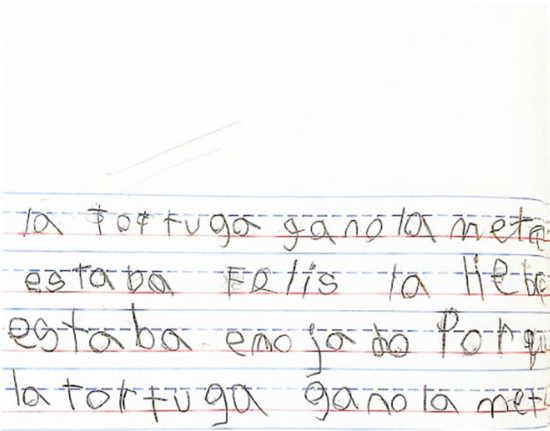 la tortuga gano la meta
estaba Felis la liebe
estaba enojado Porqu
la tortuga gano la met